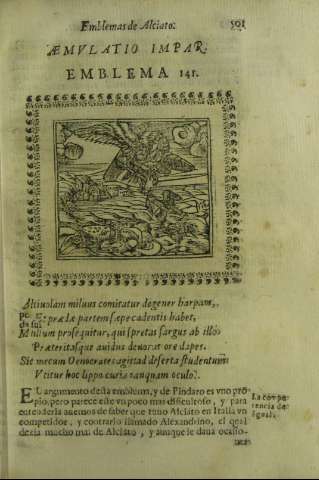 Emblemas de Alciato. 501
ÆMVLATIO IMPAR.
EMBLEMA 141.
Altiuolam miluus comitatur degener harpam,
Et prædæ partem sæpe cadentis habet,
Mullum prosequitur, qui spretas sargus ab illo
Præteritasque auidus deuorat ore dapes.
Sic mecum Oenocrates agit ad deserta studentum
Vtitur hoc lippo curia tanquam oculo.
EL argumento desta emblema, y de Pindaro es vno pro-
pio, pero parece este vn poco mas dificultoso, y para
entenderla auemos de saber que tuuo Alciato en Italia vn
competidor, y contrario llamado Alexandrino, el qual
dezia mucho mal de Alciato, y aunque le daua ocasio-
La